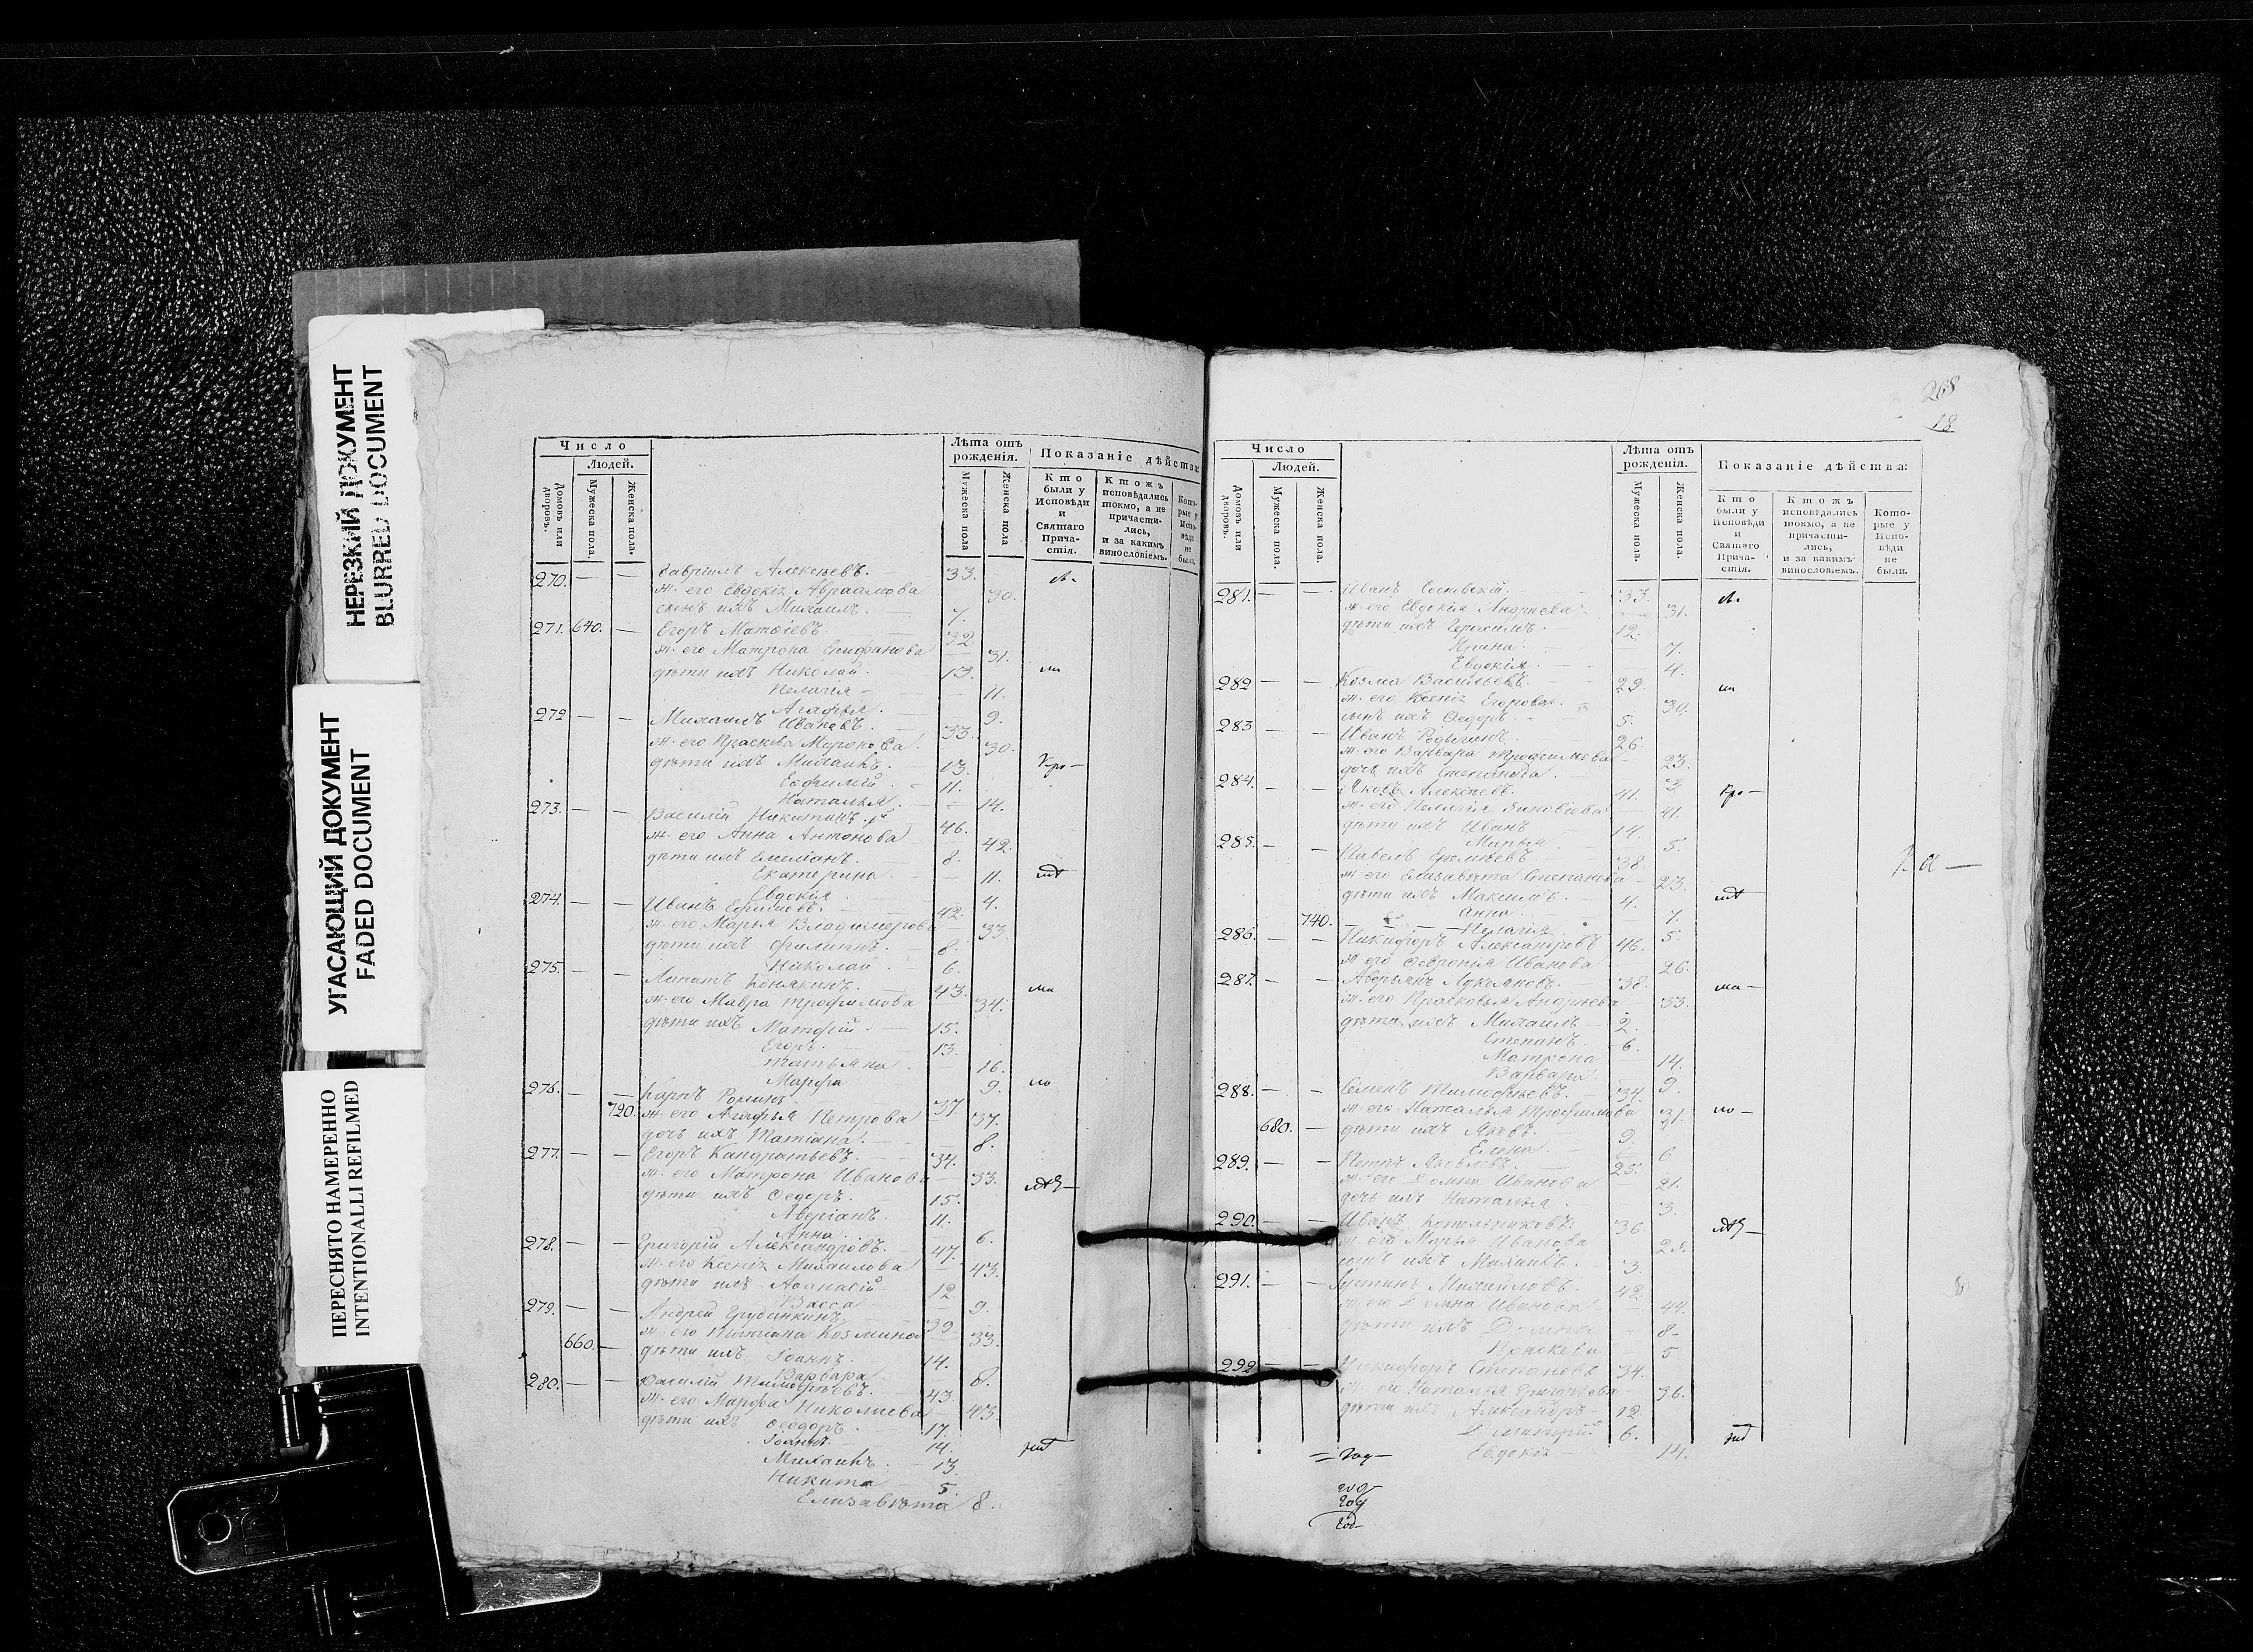 НЕРЕЗКИЙ ДОКУМЕНТ
BLURRED DOCUMENT
УГАСАЮЩИЙ ДОКУМЕНТ
FADED DOCUMENT
ПЕРЕСНЯТО НАМЕРЕННО
INTENTIONALI REFILMED
Число
Людей.
Домовъ или дворовъ.
Мужеска пола.
Женска пола.
Лѣта отъ рожденія.
Мужеска пола
Женска пола
Показаніе дѣйства:
Кто были у Исповѣди и Святаго Причастія.
Ктожъ исповѣдались токмо, а не причастились, и за какимъ винословіемъ.
Которые у Исповѣди не были.
270. — — Гавріилъ Алексѣевъ. — 33.
ж. его Евдокія Авраамова 30.
сынъ ихъ Михаилъ. — 7.
271. 640. — Егоръ Матѳіевъ 32.
ж. его Матрона Епифанова 31.
дѣти ихъ Николай. — 13.
Пелагія — 11.
Агафья. — 9.
272 — — Михаилъ Ивановъ. 33.
ж. его Праскева Миронова. 30.
дѣти ихъ Михаилъ. — 13.
Евфимій. — 11.
Наталья. — 14.
273. — — Василій Никитинъ. 46.
ж. его Анна Антонова 42.
дѣти ихъ Емеліанъ. — 8.
Екатерина — 11.
Евдокія. — 4.
274. — — Иванъ Ефимовъ. 42.
ж. его Марья Владимерова 33.
дѣти ихъ Филиппъ. — 8.
Николай. — 6.
275. — — Липатъ Конякинъ. 43.
ж. его Мавра Трофимова 34.
дѣти ихъ Матфій. — 15.
Егоръ. — 13.
Татьяна — 16.
Марфа 9.
276. — — Карпъ Роминъ. 37.
720. ж. его Агафья Петрова 37.
дочь ихъ Татіана. — 8.
277. — — Егоръ Кандратьевъ. 34.
ж. его Матрона Иванова 33.
дѣти ихъ Федоръ. 15.
Аверіанъ. 11.
Анна. 6.
278. — — Григорій Александровъ. 47.
ж. его Ксенія Михаилова 43.
дѣти ихъ Афанасій 12
Васса 9.
279. — — Андрей 39
660. — ж. его Татиана Козмина 33.
дѣти ихъ Іоаннъ. 14.
Варвара 6.
280. — — Василій Тимофѣевъ. 43.
ж. его Марфа Николаева 43.
дѣти ихъ Ѳеодоръ. 17.
Іоаннъ. — 14.
Михаилъ. — 13.
Никита 5.
Елизавѣта 8.
268
18
Число
Людей.
Домовъ или дворовъ.
Мужеска пола.
Женска пола.
Лѣта отъ рожденія.
Мужеска пола.
Женска пола.
Показаніе дѣйства:
Кто были у Исповѣди и Святаго Причастія.
Ктожъ исповѣдались токмо, а не причастились, и за какимъ винословіемъ.
Которые у Исповѣди не были.
281. — — Иванъ 33.
ж. его Евдокія Андреева 31.
дѣти ихъ Герасимъ. 12.
Ирина. 7.
Евдокія. 4.
282 — — Козма Васильевъ. 29.
ж. его Ксенія Егорова. 30.
сынъ ихъ Федоръ. 5.
283 — — Иванъ 26.
ж. его Варвара Трофимова 23.
дочь ихъ Степанида. 3
284. — — Яковъ Алексѣевъ. 41.
ж. его Пелагія Зиновіева 41.
дѣти ихъ Иванъ 14.
Марья 5.
285. — — Павелъ Еремѣевъ 38.
ж. его Елизавѣта Степанова 23.
дѣти ихъ Максимъ. 4.
740. Анна. 7.
Пелагія 5.
286. — — Никифоръ Александровъ 46.
ж. его Февронія Иванова 26.
287. — — Аверьянъ Лукьяновъ. 38.
ж. его Прасковья Андреева 33.
дѣти ихъ Михаилъ 2.
Степанъ. 6.
Матрона 14.
Варвара. 9.
288. — — Семенъ Тимофѣевъ. 34.
ж. его Наталья Трофимова 31.
680. — дѣти ихъ Яковъ. 9.
Елена 6
289. — — Петръ Яковлевъ. 25.
ж. его Домна Иванова 21.
дочь ихъ Наталья. 3.
290. — — Иванъ Котельниковъ. 36.
ж. его Марья Иванова 28.
сынъ ихъ Михаилъ. 3.
291. — — Устинъ Михайловъ. 42.
ж. его Домна Иванова 44.
дѣти ихъ Домна 8.
Праскева 5
292 — — Никифоръ Степановъ 34.
ж. его Наталья Григорьева 36.
дѣти ихъ Александръ 12.
Димитрій 6.
Евдокія 14.